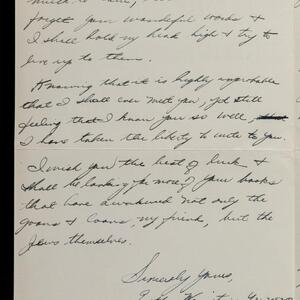 forget your wonderful words &
I shall hold my head high & try to
live up to them.
Knowing that it is highly improbable
that I shall ever meet you, yet still
feeling that I know you so well,
I have taken the liberty to write to you.
I wish you the best of luck &
shall be looking for more of your books
that have awakened not only the
goons & Coons, my friend, but the
Jews themselves.
Sincerely yours,